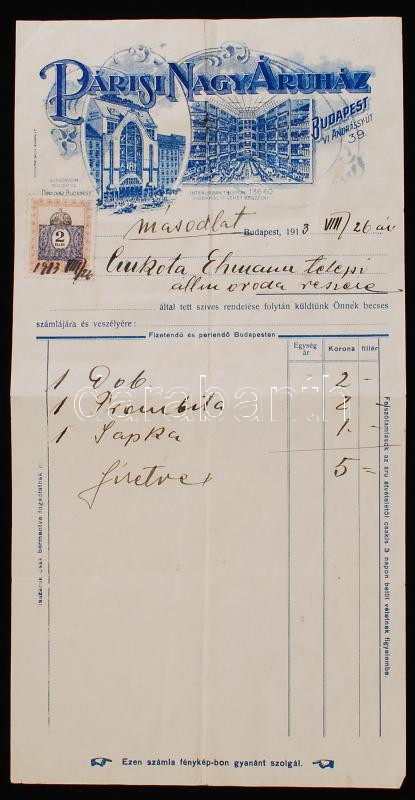 PÁRISI NAGY ÁRUHÁZ
BUDAPEST
VI ANDRÁSSY-ÚT
39.
INTERURBAN TELEFON 136-60
másodlat Budapest, 1913 VIII/26 án
2
1913 VIII/26
Cinkota Ehmann telepi
állmi ovoda részére
által tett szives rendelése folytán küldtünk Önnek becses
számlájára és veszélyére:
Fizetendő és perlendő Budapesten
Egység ár Korona fillér
1 Dob 2 –
1 Trombita
1 Sapka 1 –
5 =
fizetve
Felszólamlások az áru átvételétől csakis 3 napon belül vétetnek figyelembe.
csak bérmentve fogadtatnak
darabanth
Ezen számla fénykép-bon gyanánt szolgál.